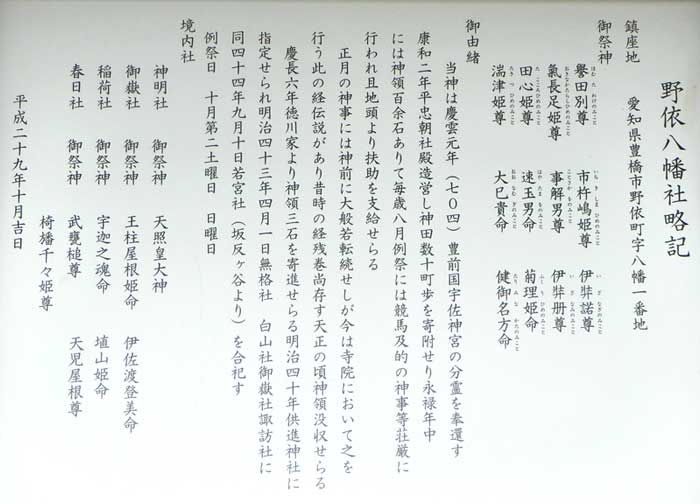 野依八幡社略記
鎮座地　愛知県豊橋市野依町字八幡一番地
御祭神
誉田別尊　市杵嶋姫尊　伊弉諾尊
氣長足姫尊　事解男尊　伊弉册尊
田心姫尊　速玉男命　菊理姫命
湍津姫尊　大巳貴命　健御名方命
御由緒
当神は慶雲元年（七〇四）豊前国宇佐神宮の分霊を奉還す
康和二年平忠朝社殿造営し神田数十町歩を寄附せり永禄年中
には神領百余石ありて毎歳八月例祭には競馬及的の神事等荘厳に
行われ且地頭より扶助を支給せらる
正月の神事には神前に大般若転続せしが今は寺院において之を
行う此の経伝説があり昔時の経残巻尚存す天正の頃神領没収せらる
慶長六年徳川家より神領三石を寄進せらる明治四十年供進神社に
指定せられ明治四十三年四月一日無格社　白山社御嶽社諏訪社に
同四十四年九月十日若宮社（坂反ヶ谷より）を合祀す
例祭日　十月第二土曜日　日曜日
境内社
神明社　御祭神　天照皇大神
御嶽社　御祭神　王柱屋根姫命　伊佐渡登美命
稲荷社　御祭神　宇迦之魂命　埴山姫命
春日社　御祭神　武甕槌尊　天児屋根尊
椅播千々姫尊
平成二十九年十月吉日